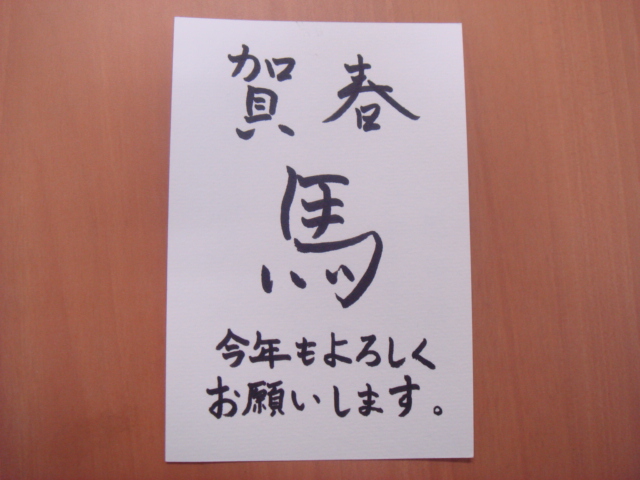 賀春
馬
今年もよろしく
お願いします。